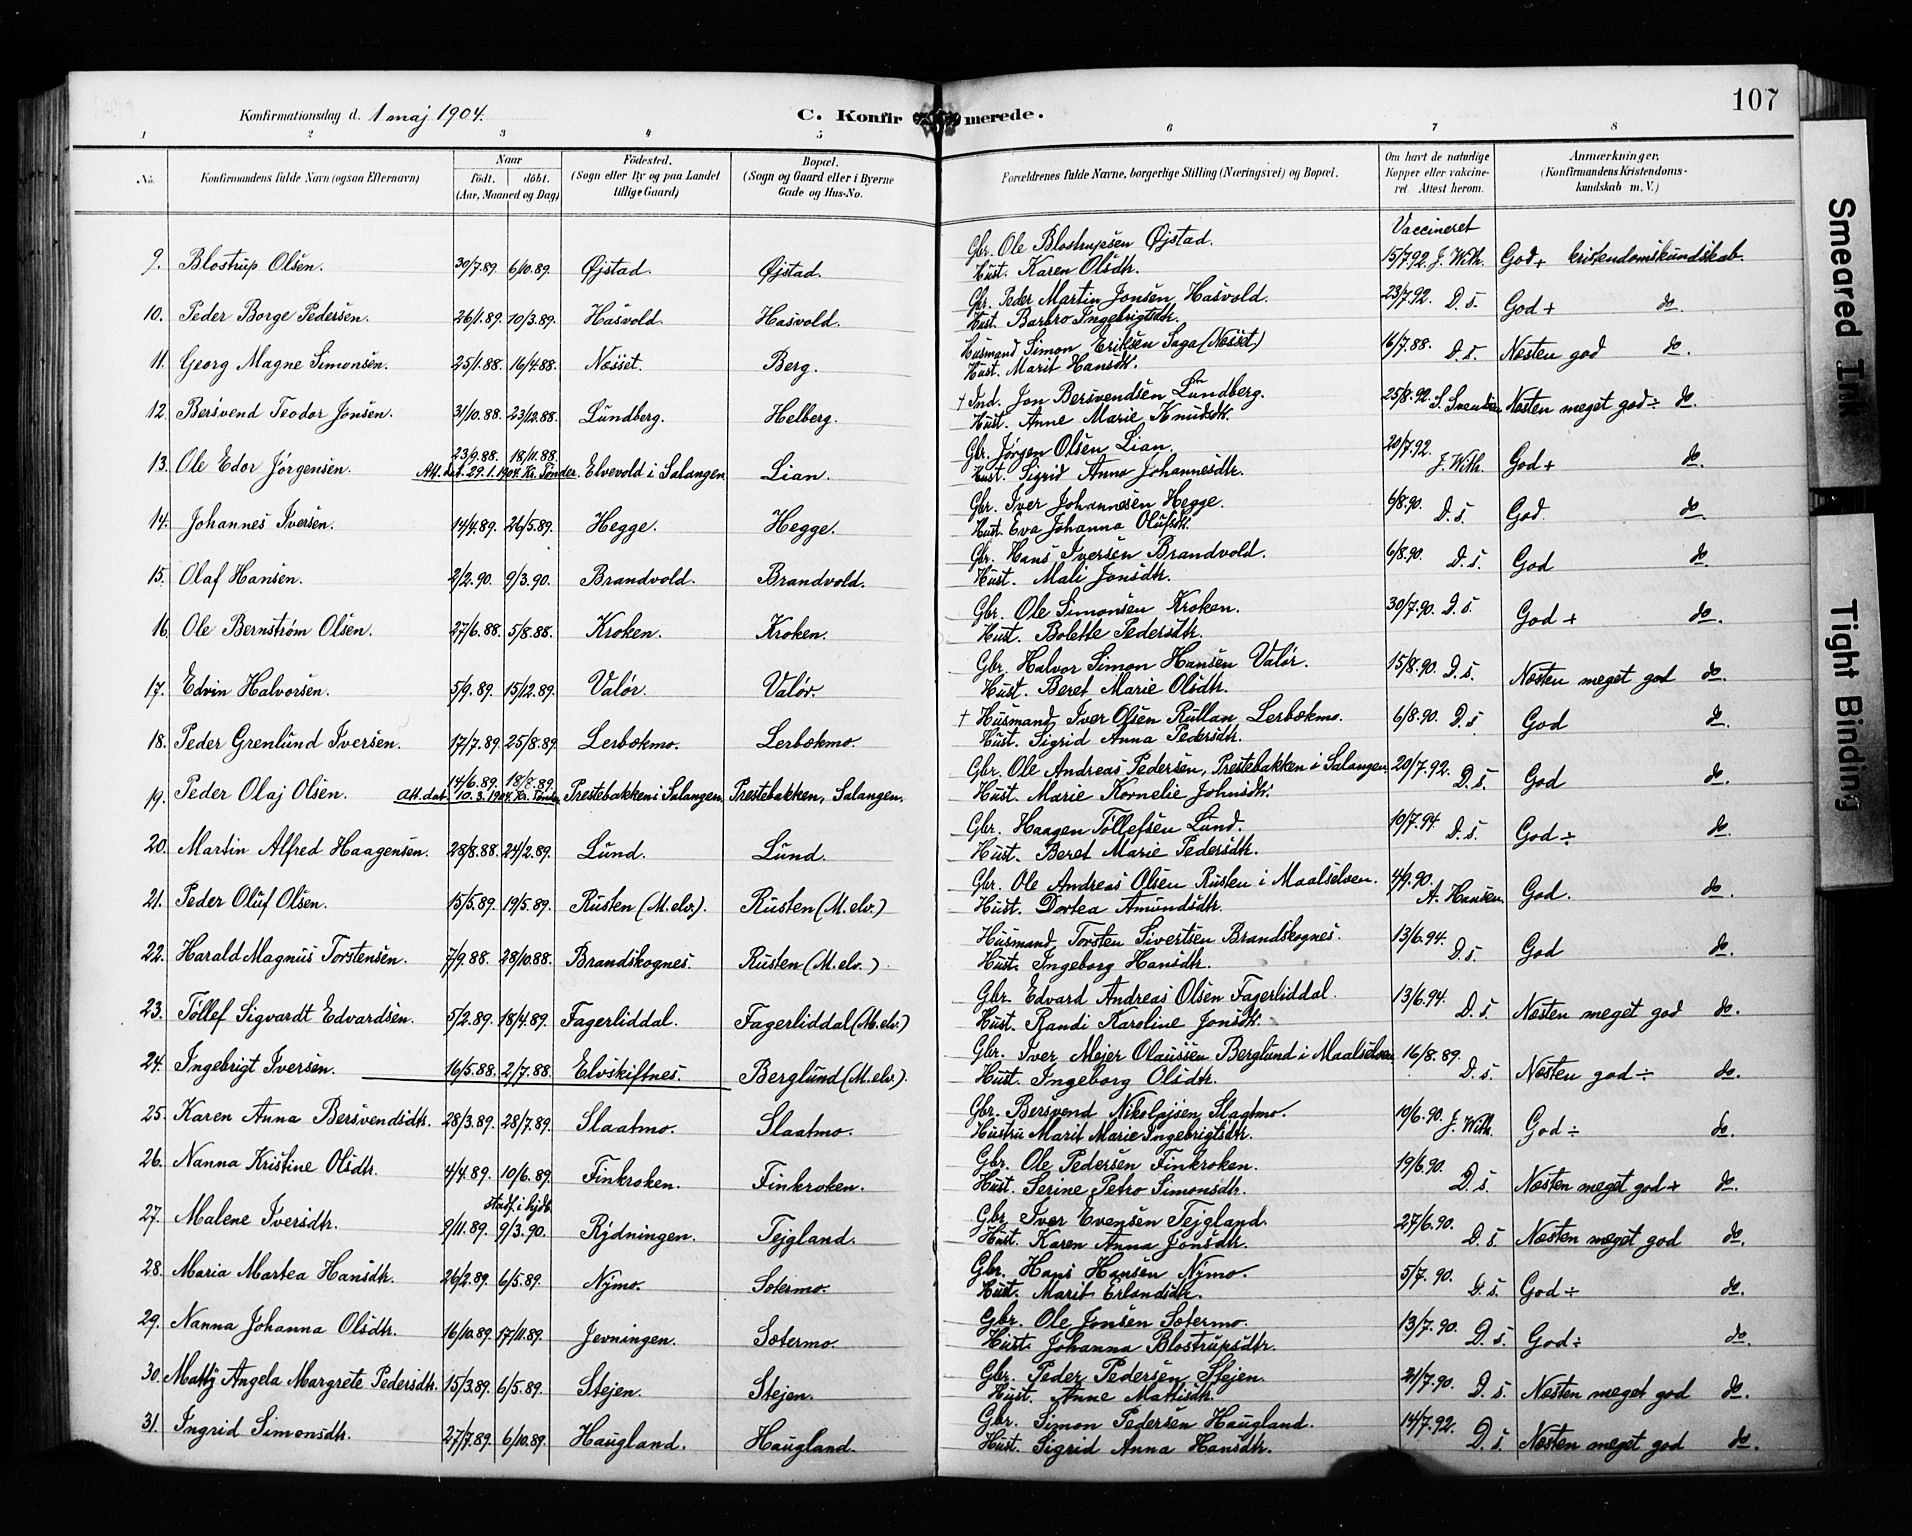 107
Konfirmationsdag d. 1 maj 1904.
C. Konfirmerede.
1 2 3 4 5 6 7 8
No.
Konfirmandens fulde Navn (ogsaa Efternavn)
Naar
födt. döbt.
(Aar, Maaned og Dag)
Födested.
(Sogn eller By og paa Landet
tillige Gaard)
Bopæl.
(Sogn og Gaard eller i Byerne
Gade og Hus-No.
Forældrenes fulde Navne, borgerlige Stilling (Næringsvei) og Bopæl.
Om havt de naturlige
Kopper eller vakcine-
ret. Attest herom.
Anmærkninger.
(Konfirmandens Kristendoms-
kundskab m. V.)
Vaccineret
9. Blostrup Olsen. 30/7.89. 6/10.89. Øjstad. Øjstad. Gbr. Ole Blostrupsen Øjstad. 15/7.92. J. With. God + kristendomskundskab.
Hust. Karen Olsdtr.
10. Peder Borge Pedersen. 26/1.89. 10/3.89. Hasvold. Hasvold. Gbr. Peder Martin Jonsen Hasvold. 23/7.92. D. s. God + do.
Hust. Barbro Ingebrigtsdtr.
11. Georg Magne Simonsen. 25/1.88. 16/4.88. Næsset. Berg. Husmand Simon Eriksen Saga (Næsset) 16/7.88. D. s. Næsten god do.
Hust. Marit Hansdtr.
12. Bersvend Teodor Jonsen. 31/10.88. 23/12.88. Lundberg. Helberg. + Ind. Jon Bersvendsen Lundberg. 25/8.92. S. Svendsen Næsten meget god ÷ do.
Hust. Anne Marie Knudsdtr.
13. Ole Edor Jørgensen. 23/9.88. 18/11.88. Elvevold i Salangen Lian. Gbr. Jørgen Olsen Lian. 20/7.92. J. With. God + do.
Att. dat. 29.1.1904. Kr. Tønder. Hust. Sigrid Anna Johannesdtr.
14. Johannes Iversen. 14/4.89. 26/5.89. Hegge. Hegge. Gbr. Iver Johannesen Hegge. 6/8.90. D. s. God. do.
Hust. Eva Johanna Olufsdtr.
15. Olaf Hansen. 2/2.90. 9/3.90. Brandvold. Brandvold. Gbr. Hans Iversen Brandvold. 6/8.90. D. s. God do
Hust. Mali Jonsdtr.
16. Ole Bernstrøm Olsen. 27/6.88. 5/8.88. Kroken. Kroken. Gbr. Ole Simonsen Kroken. 30/7.90. D. s. God + do.
Hust. Bolette Pedersdtr.
17. Edvin Halvorsen. 5/9.89. 15/12.89. Valør. Valør. Gbr. Halvor Simon Hansen Valør. 15/8.90. D. s. Næsten meget god do.
Hust. Beret Marie Olsdtr.
18. Peder Grenlund Iversen. 17/7.89. 25/8.89. Lerbækmo. Lerbækmo. + Husmand Iver Olsen Rullan Lerbækmo. 6/8.90. D. s God do.
Hust. Sigrid Anna Pedersdtr.
19. Peder Olaj Olsen. 14/6.89. 18/8.89. Prestebakken i Salangen. Prestebakken, Salangen. Gbr. Ole Andreas Pedersen, Prestebakken i Salangen 20/7.92. D. s. God do.
Att. dat. 10.3.1904. Kr. Tønder Hust. Marie Kornelie Johnsdtr.
20. Martin Alfred Haagensen. 28/8.88. 24/2.89. Lund. Lund. Gbr. Haagen Tøllefsen Lund. 10/7.94. D. s. God ÷ do.
Hust. Beret Marie Pedersdtr.
21. Peder Oluf Olsen. 15/5.89. 19/5.89. Rusten (M.elv.). Rusten (M.elv.) Gbr. Ole Andreas Olsen Rusten i Maalselven. 4/9.90. A. Hansen. God. do.
Hust. Dortea Amundsdtr.
22. Harald Magnus Torstensen. 7/9.88. 28/10.88. Brandskognes. Rusten (M.elv.). Husmand Torsten Sivertsen Brandskognes. 13/6.94. D. s. God do.
Hust. Ingeborg Hansdtr.
23. Tøllef Sigvardt Edvardsen. 5/2.89. 18/4.89. Fagerliddal. Fagerliddal (M.elv.) Gbr. Edvard Andreas Olsen Fagerliddal. 13/6.94. D. s. Næsten meget god do.
Hust. Randi Karoline Jonsdtr.
24. Ingebrigt Iversen. 16/5.88. 2/7.88. Elvskiftnes. Berglund (M.elv.). Gbr. Iver Mejer Olaussen Berglund i Maalselven 16/8.89. D. s. Næsten god ÷ do.
Hust. Ingeborg Olsdtr.
25. Karen Anna Bersvendsdtr. 28/3.89. 28/7.89. Slaatmo. Slaatmo. Gbr. Bersvend Nikolajsen Slaatmo. 10/6.90. J. With. God ÷ do.
Hustru Marit Marie Ingebrigtsdtr.
26. Nanna Kristine Olsdtr. 4/4.89. 10/6.89. Finkroken. Finkroken. Gbr. Ole Pedersen Finkroken. 19/6.90. D. s. Næsten meget god + do.
Hust. Serine Petro Simonsdtr.
27. Malene Iversdtr. 9/11.89. stadf. i hjdb. 9/3.90. Rydningen. Tejgland. Gbr. Iver Evensen Tejgland. 27/6.90. D. s. Næsten meget god do.
Hust. Karen Anna Jonsdtr.
28. Maria Martea Hansdtr. 26/2.89. 6/5.89. Nymo. Sætermo. Gbr. Hans Hansen Nymo. 5/7.90. D. s. God ÷ do.
Hust. Marit Erlandsdtr.
29. Nanna Johanna Olsdtr. 16/10.89. 17/11.89. Jevningen. Sætermo. Gbr. Ole Jonsen Sætermo. 13/7.90. D. s. God ÷ do
Hust. Johanna Blostrupsdtr.
30. Matty Angela Margrete Pedersdtr. 15/3.89. 6/5.89. Stejen. Stejen. Gbr. Peder Pedersen Stejen. 21/7.90. D. s. Næsten meget god do.
Hust. Anne Mattisdtr.
31. Ingrid Simonsdtr. 27/7.89. 6/10.89. Haugland. Haugland. Gbr. Simon Pedersen Haugland. 14/7.92. D. s. Næsten meget god do.
Hust. Sigrid Anna Hansdtr.
Smeared Ink
Tight Binding